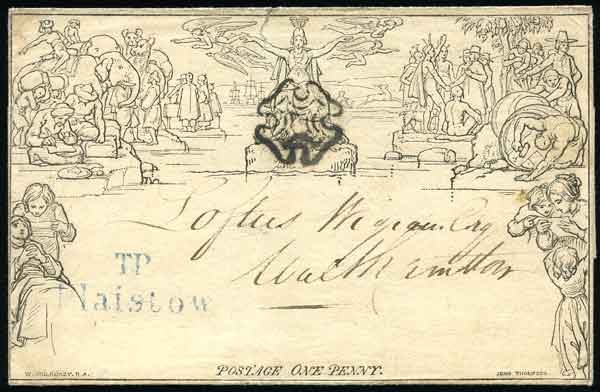 Loftus Wigram Esq
Walthamstow
TP
Plaistow
W. MULREADY. R.A.
POSTAGE ONE PENNY.
JOHN THOMPSON